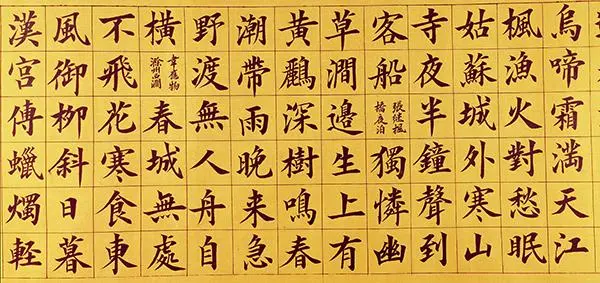 烏啼霜滿天江
楓漁火對愁眠
姑蘇城外寒山
寺夜半鐘聲到
客船
張继楓
橋夜泊
獨憐幽
草澗邊生上有
黃鸝深樹鳴春
潮帶雨晚来急
野渡無人舟自
橫
韋應物
滁州西澗
春城無處
不飛花寒食東
風御柳斜日暮
漢宮傳蠟燭軽